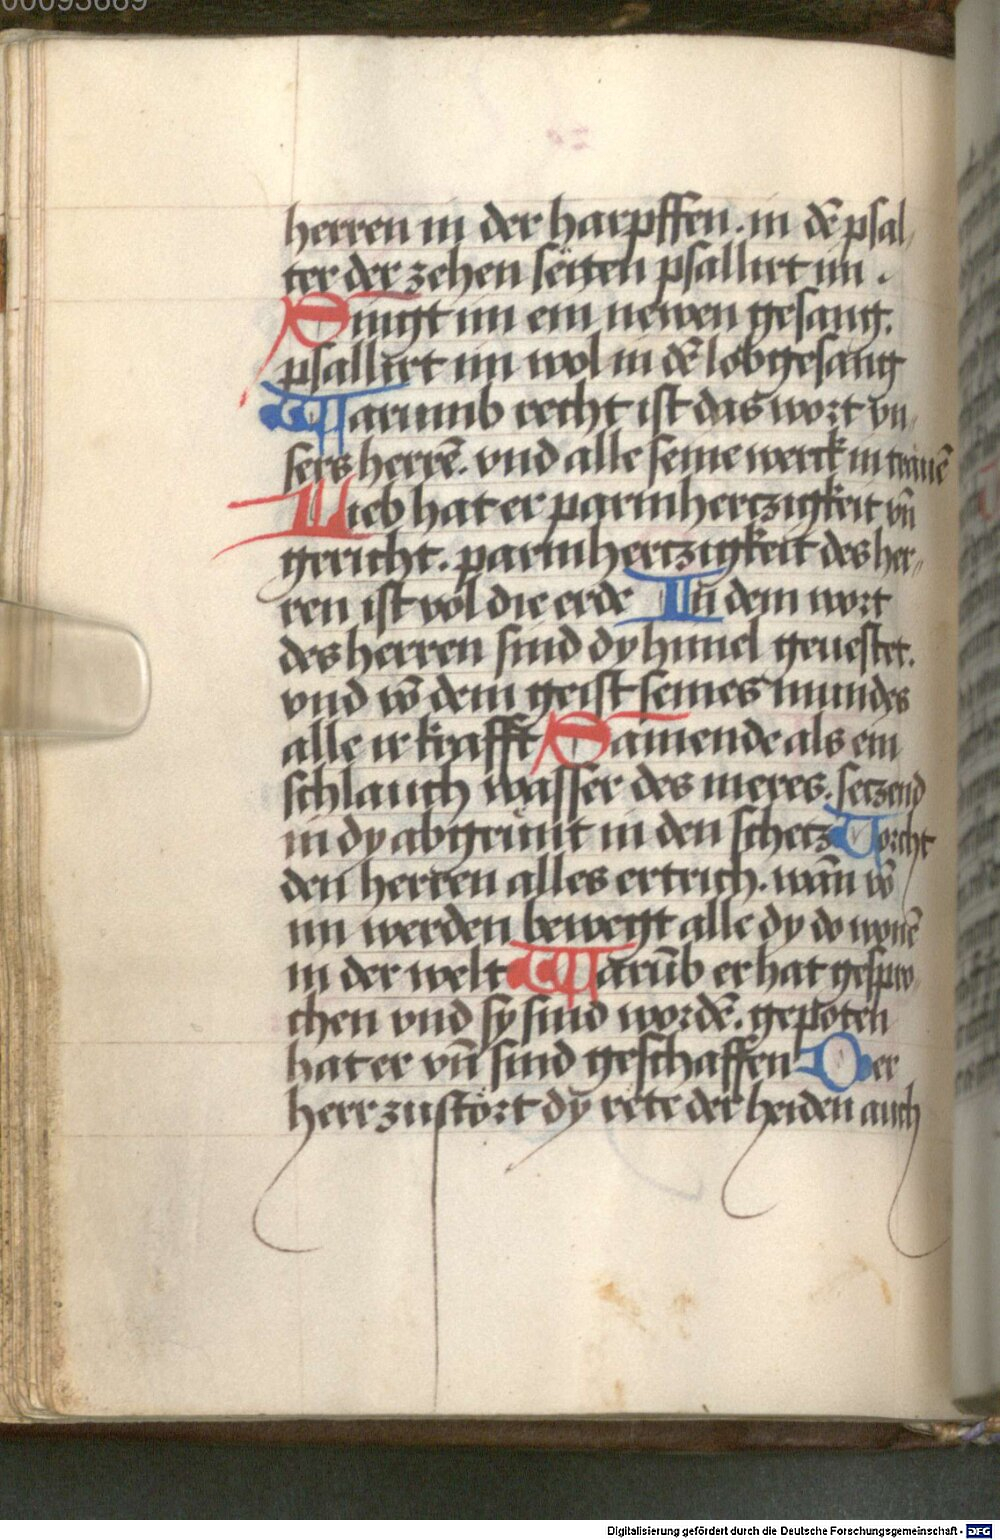 00093889
herren in der harpffen. in dē psal
ter der zehen seiten psallirt im .
Singt im ein newen gesang.
psallirt im wol in dē lobgesang
Warumb recht ist das wort vn
sers herrē. vnd alle seine werck in trawē
Lieb hat er parmhertzigkeit vn̄
gericht. parmhertzigkeit des her
ren ist vol die erde In dem wort
des herren sind dy himel geuestet.
vnd vō dem geist seines mundes
alle ir krafft Samende als ein
schlauch wasser des meres. seczend
in dy abgrünt in den schecz Vorcht
den herren alles ertrich. wān vō
im werden bewegt alle dy do wonē
in der welt Warūb er hat gespro
chen vnd sy sind wordē. gepoten
hat er vn̄ sind geschaffen Der
herr zustört dy rete der heiden auch
Digitalisierung gefördert durch die Deutsche Forschungsgemeinschaft - DFG